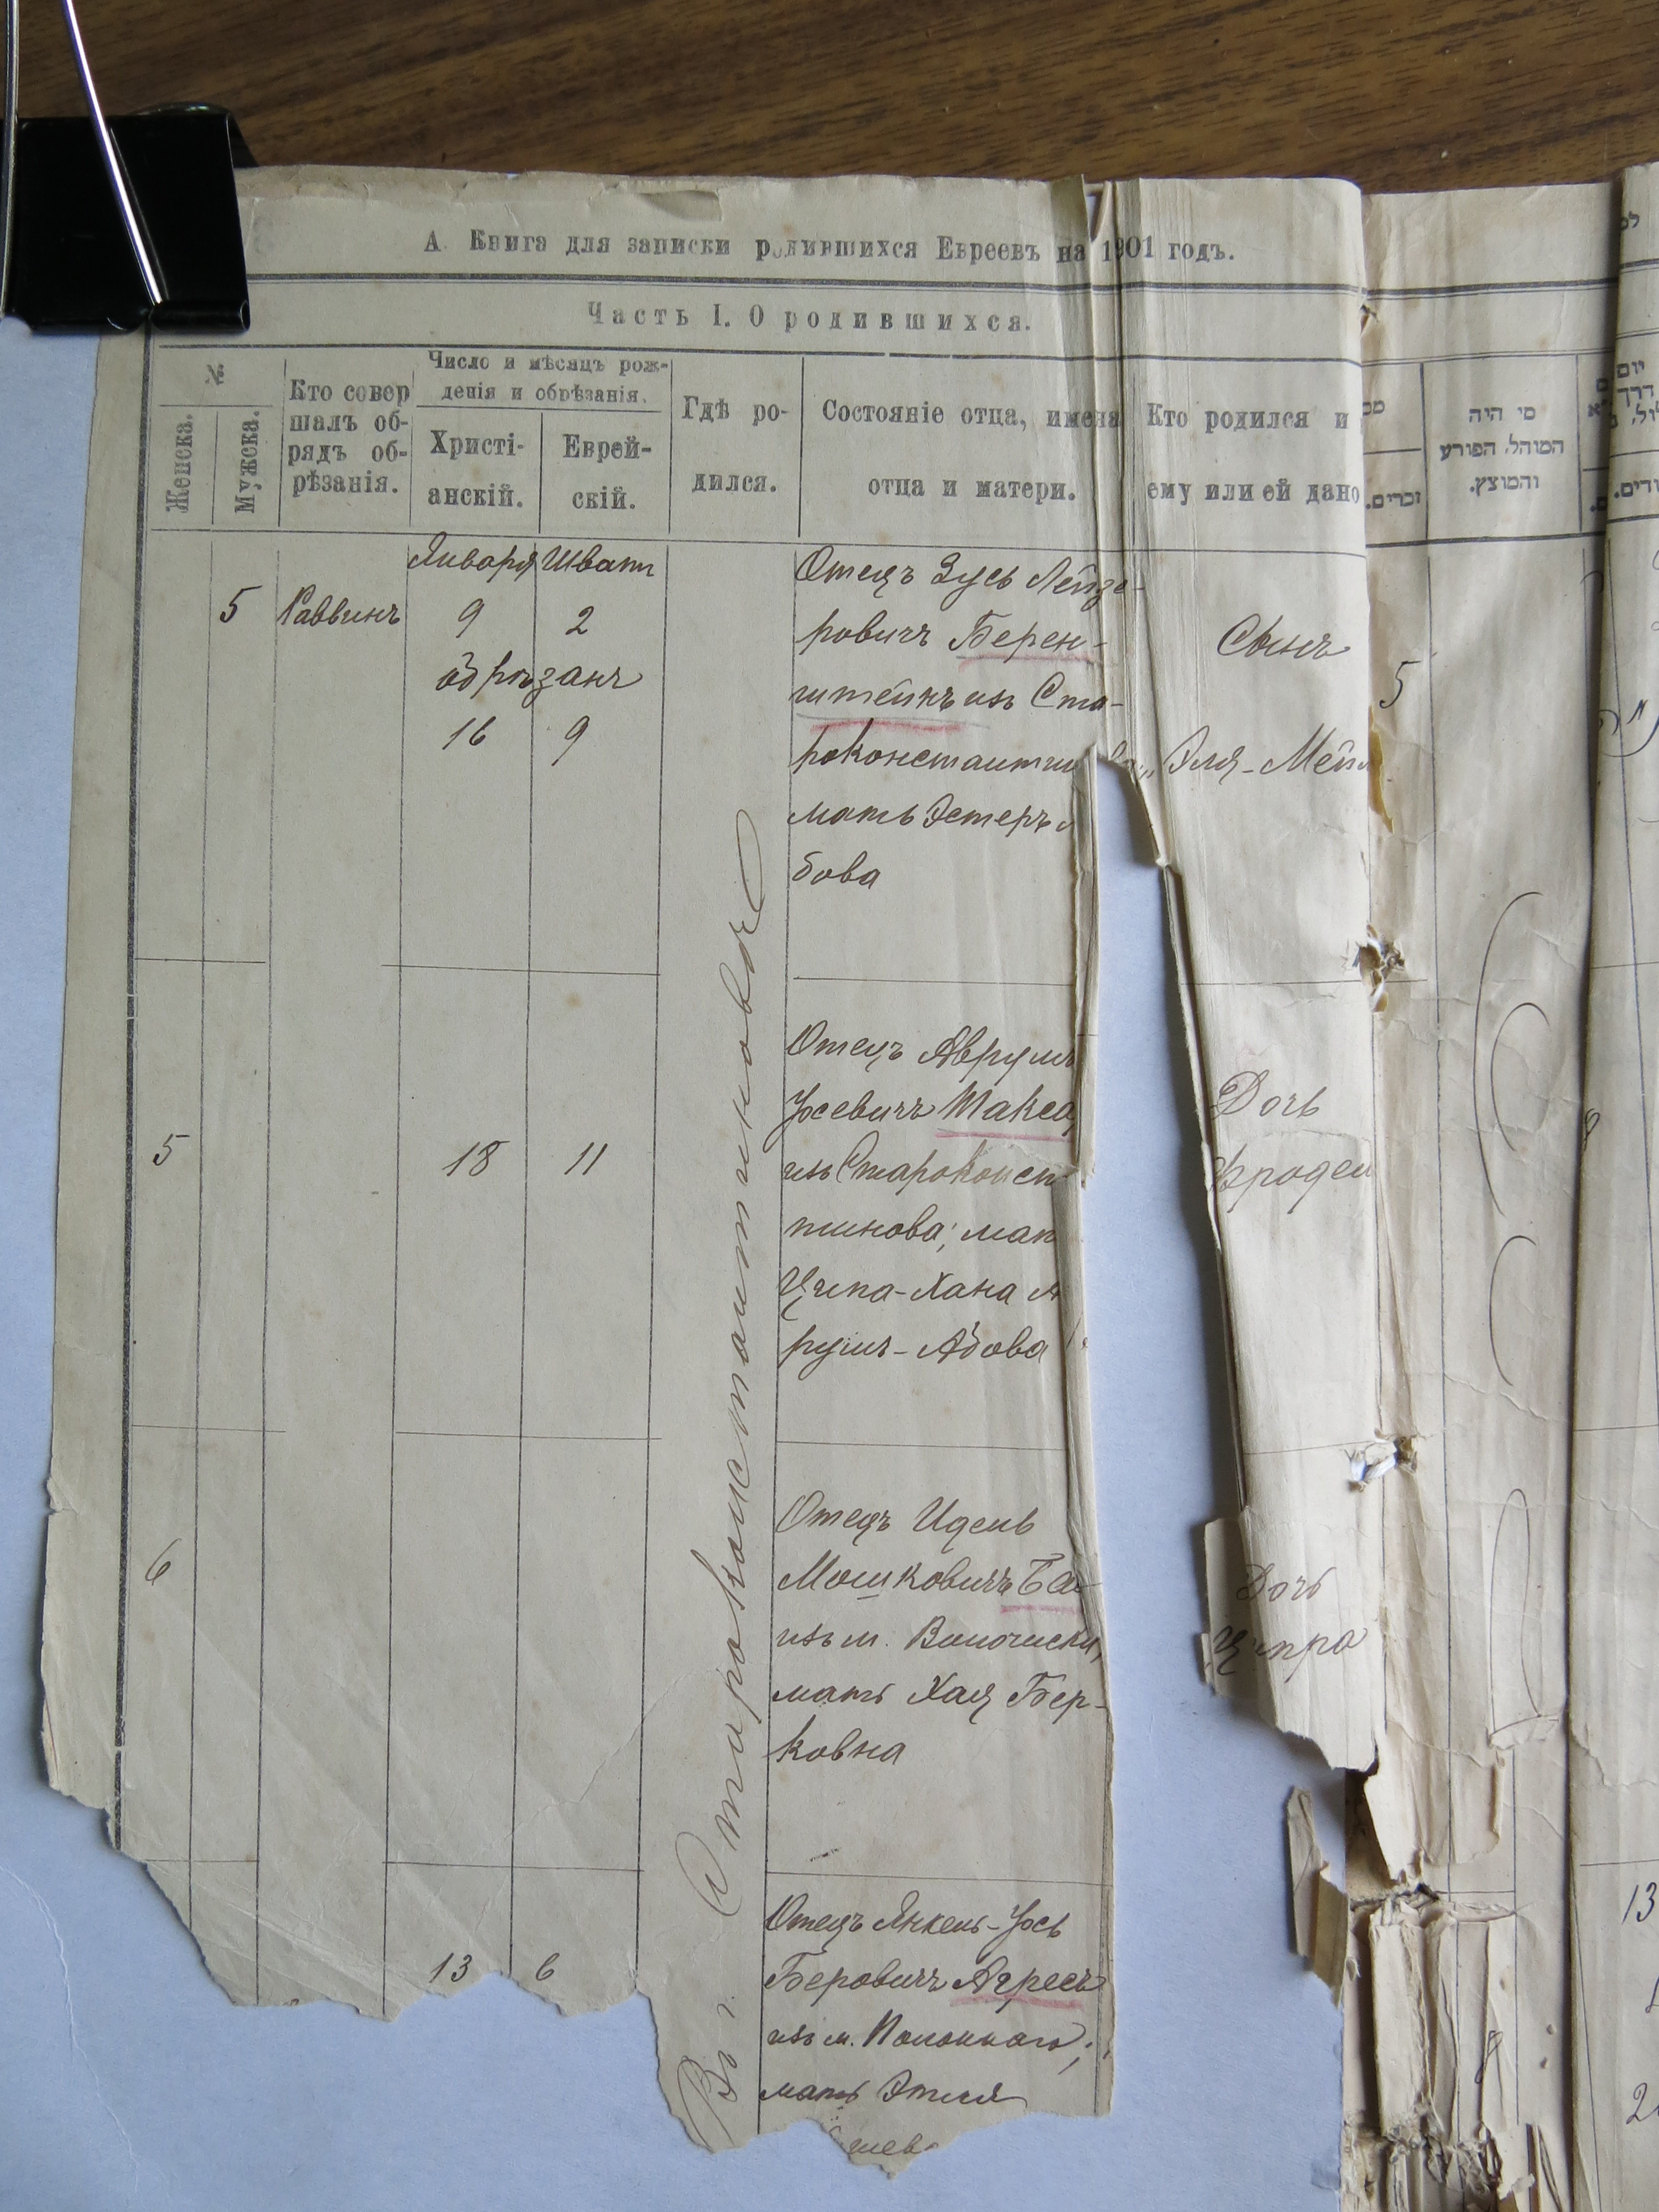 А. Книга для записки родившихся Евреевъ на 1901 годъ.
Часть I. О родившихся.
№
Женска.
Мужска.
Кто совер
шалъ об-
рядъ об-
рѣзанія.
Число и мѣсяцъ рож-
денія и обрѣзанія.
Христі-
анскій.
Еврей-
скій.
Гдѣ ро-
дился.
Состояніе отца, имена
отца и матери.
Кто родился и
ему или ей дано
מי היה
המוהל, הפורע
והמוצץ.
זכרים.
5 Раввинъ
Января Шватъ
9 2
обрѣзанъ
16 9
Отецъ Зусь Лейзе-
ровичъ Берен-
штейнъ изъ Ста-
роконстантин
мать Эстеръ
бова
Сынъ
Эля-Мей
5
Въ г. Староконстантиновѣ
5
18 11
Отецъ Аврумъ
Іосевичъ Такса
изъ Староконст
тинова; мат
Ципа-Хана А
румъ-Абова
Дочь
Фродел
6
Отецъ Идель
Мошковичъ Ба
изъ м. Волочиски,
мать Хая Бер-
ковна
Дочь
Ципра
13 6
Отецъ Янкель-Іось
Беровичъ Агресъ
изъ м. Полоннаго;
мать Этля
шев
8
13